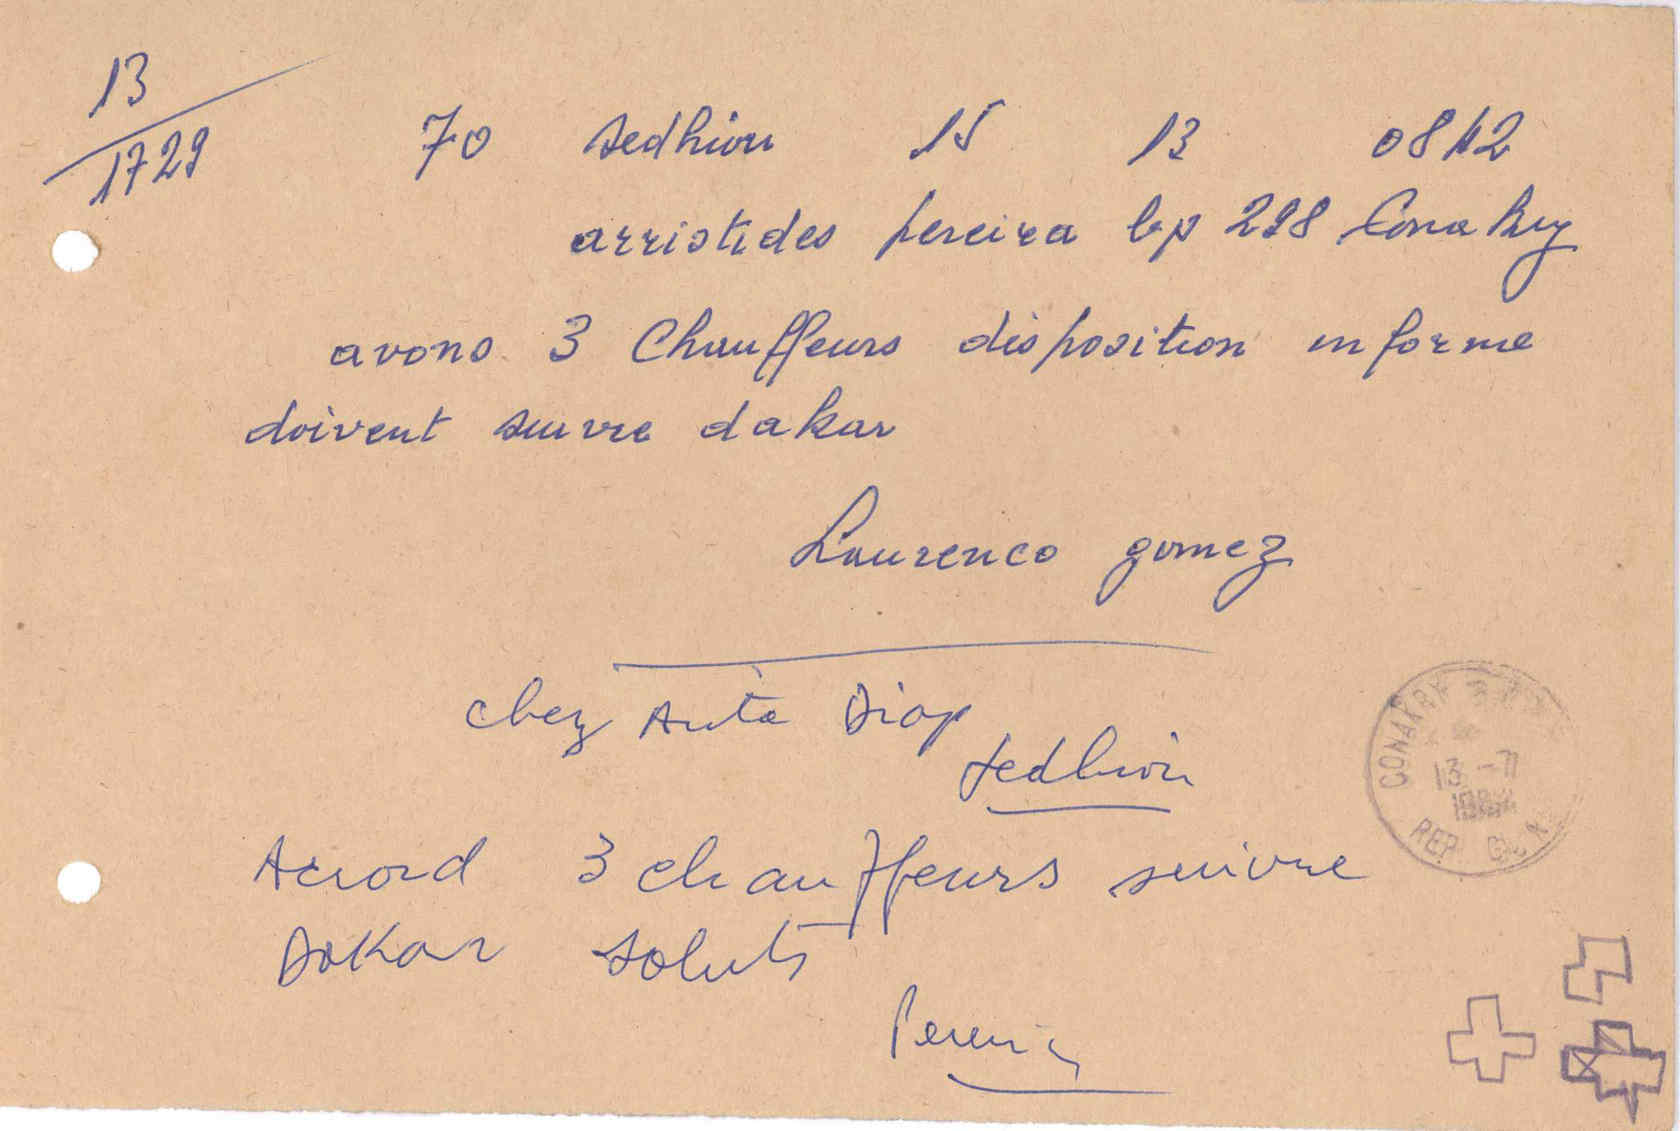 13
1729
70 sedhiou 15 13 0842
arristides pereira bp 298 Conakry
avons 3 Chauffeurs disposition informe
doivent suivre dakar
Laurenco gomez
chez Anta Diop
Sedhiou
Accord 3 chauffeurs suivre
Dakar saluts
Pereira
CONAKRY
13 -7
REP. GUIN